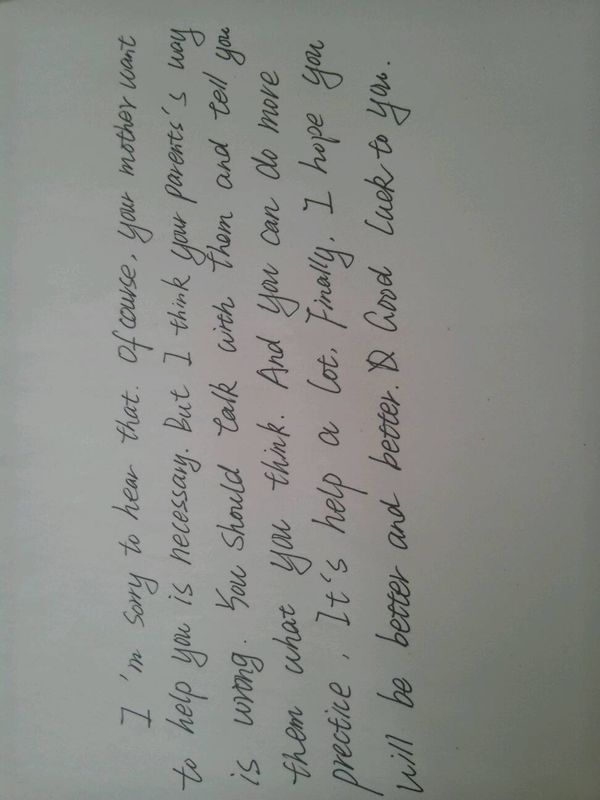 I'm sorry to hear that. Of course, your mother want
to help you is necessary. But I think your parents's way
is wrong. You should talk with them and tell you
them what you think. And you can do more
prectice, It's help a lot. Finally, I hope you
will be better and better. Good luck to you.